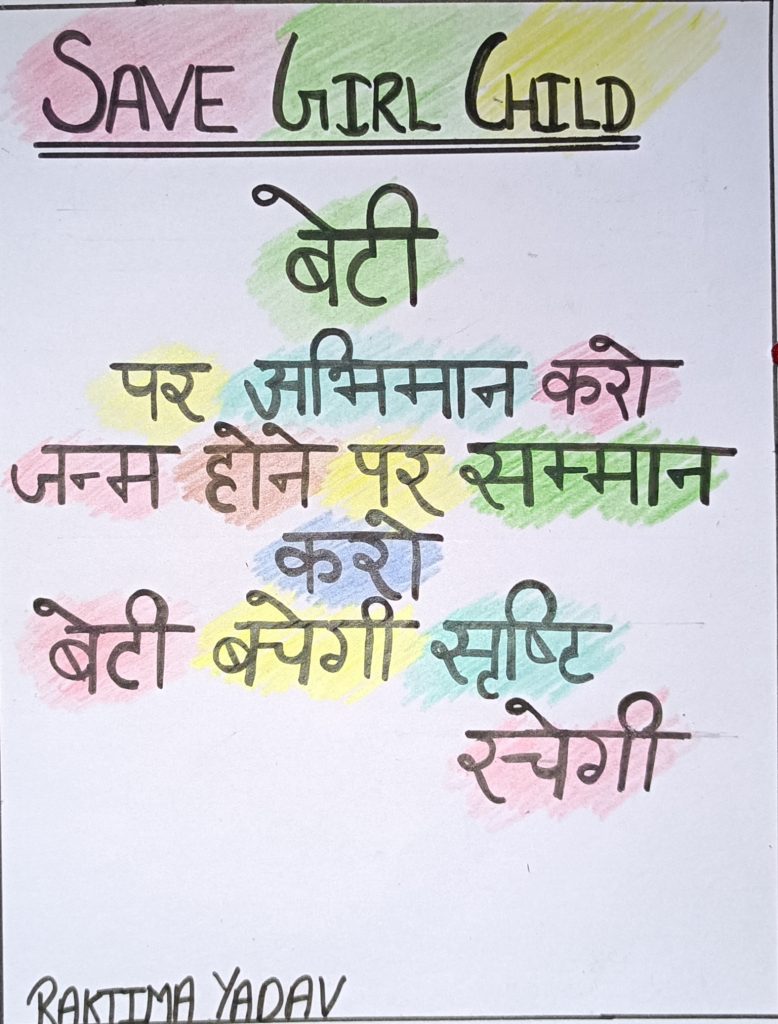 SAVE GIRL CHILD
बेटी
पर अभिमान करो
जन्म होने पर सम्मान
करो
बेटी बचेगी सृष्टि
रचेगी
RAKTIMA YADAV